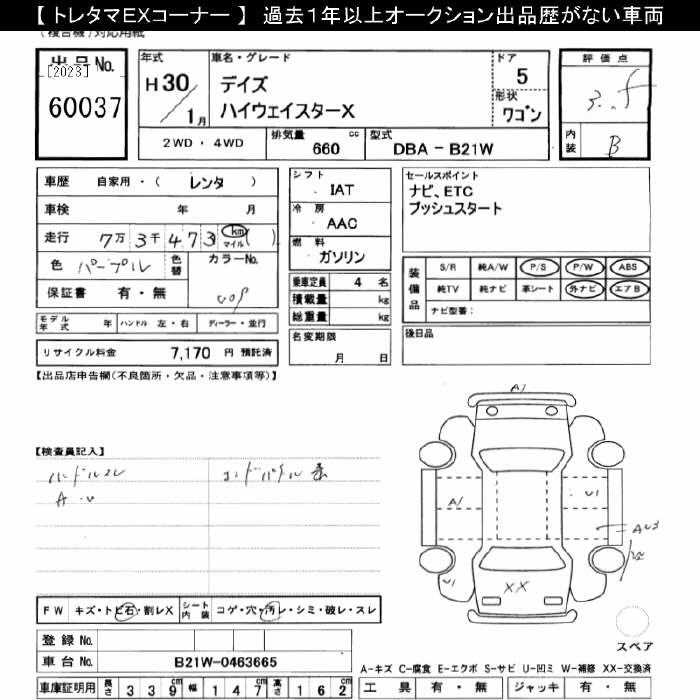 【トレタマEXコーナー】 過去1年以上オークション出品歴がない車両
(複合機)対応用紙
出品No.
[2023]
60037
年式
H30/1月
車名・グレード
デイズ
ハイウェイスターX
ドア
5
形状
ワゴン
評価点
3.5
内装
B
2WD・4WD
排気量
660 cc
型式
DBA - B21W
車歴 自家用・( レンタ )
車検 年 月
走行 7万3千473 km マイル ( )
色 パープル 色替 カラーNo.
保証書 有・無
シフト
IAT
冷房
AAC
燃料
ガソリン
乗車定員 4 名
積載量 kg
総重量 kg
セールスポイント
ナビ、ETC
プッシュスタート
装備品
S/R 純A/W P/S P/W ABS
純TV 純ナビ 革シート 外ナビ エアB
ナビ型番:
モデル年式 年 ハンドル 左・右 ディーラー・並行
リサイクル料金 7,170 円 預託済
名変期限
月 日
後日品
【出品店申告欄(不良箇所・欠品・注意事項等)】
【検査員記入】
ハンドルスレ
A・U
A1
A1
U1
AU3
U1
XX
FW キズ・トビ石・割レX シート内装 コゲ・穴・汚レ・シミ・破レ・スレ
登録No.
車台No. B21W-0463665
車庫証明用 長さ 339cm 幅 147cm 高さ 162cm
スペア
A-キズ C-腐食 E-エクボ S-サビ U-凹ミ W-補修 XX-交換済
工具 有・無 ジャッキ 有・無